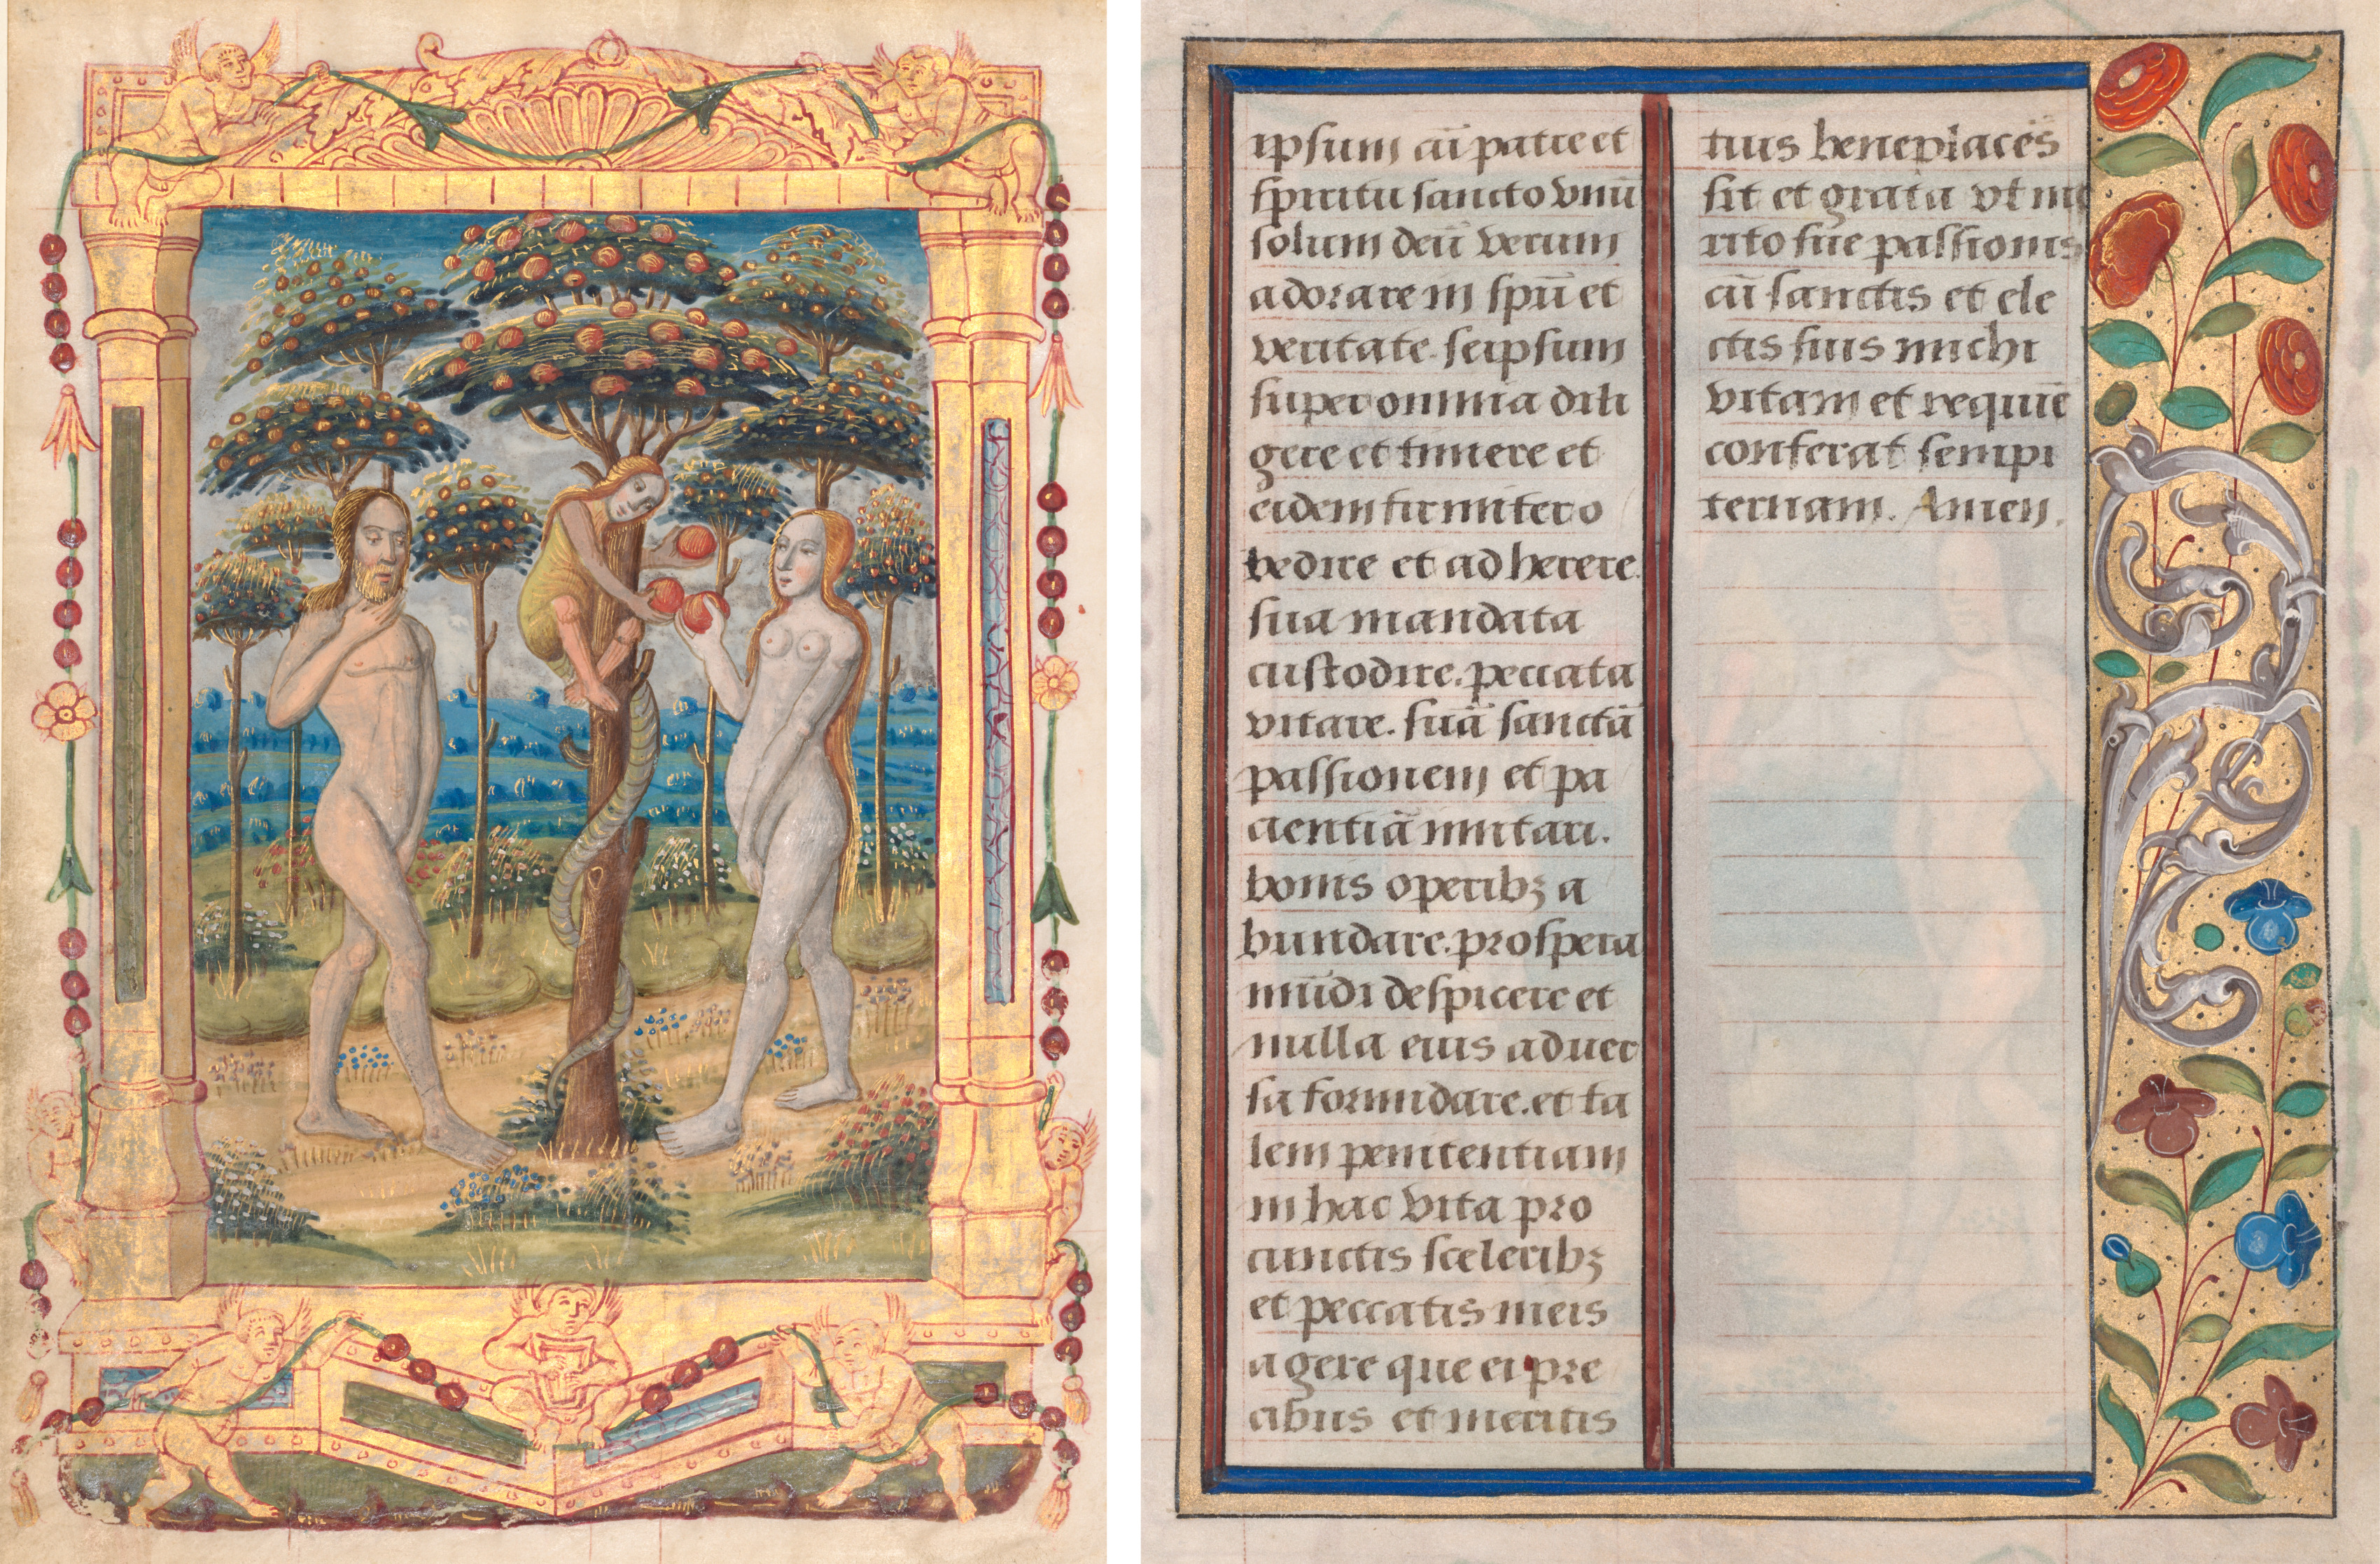 ipsum cū patre et
spiritu sancto vnū
solum deū verum
adorare in spū et
veritate. seipsum
super omnia dili
gere et timere et
eidem firmiter o
bedire et adherere.
sua mandata
custodire. peccata
vitare. suā sanctā
passionem et pa
cientiā imitari.
bonis operibꝫ a
bundare. prospera
mūdi despicere et
nulla eius aduer
sa formidare. et ta
lem penitentiam
in hac vita pro
cunctis sceleribꝫ
et peccatis meis
agere que ei pre
cibus et meritis
tuis beneplacēs
sit et grata vt me
rito sue passionis
cū sanctis et ele
ctis suis michi
vitam et requiē
conferat sempi
ternam. Amen.